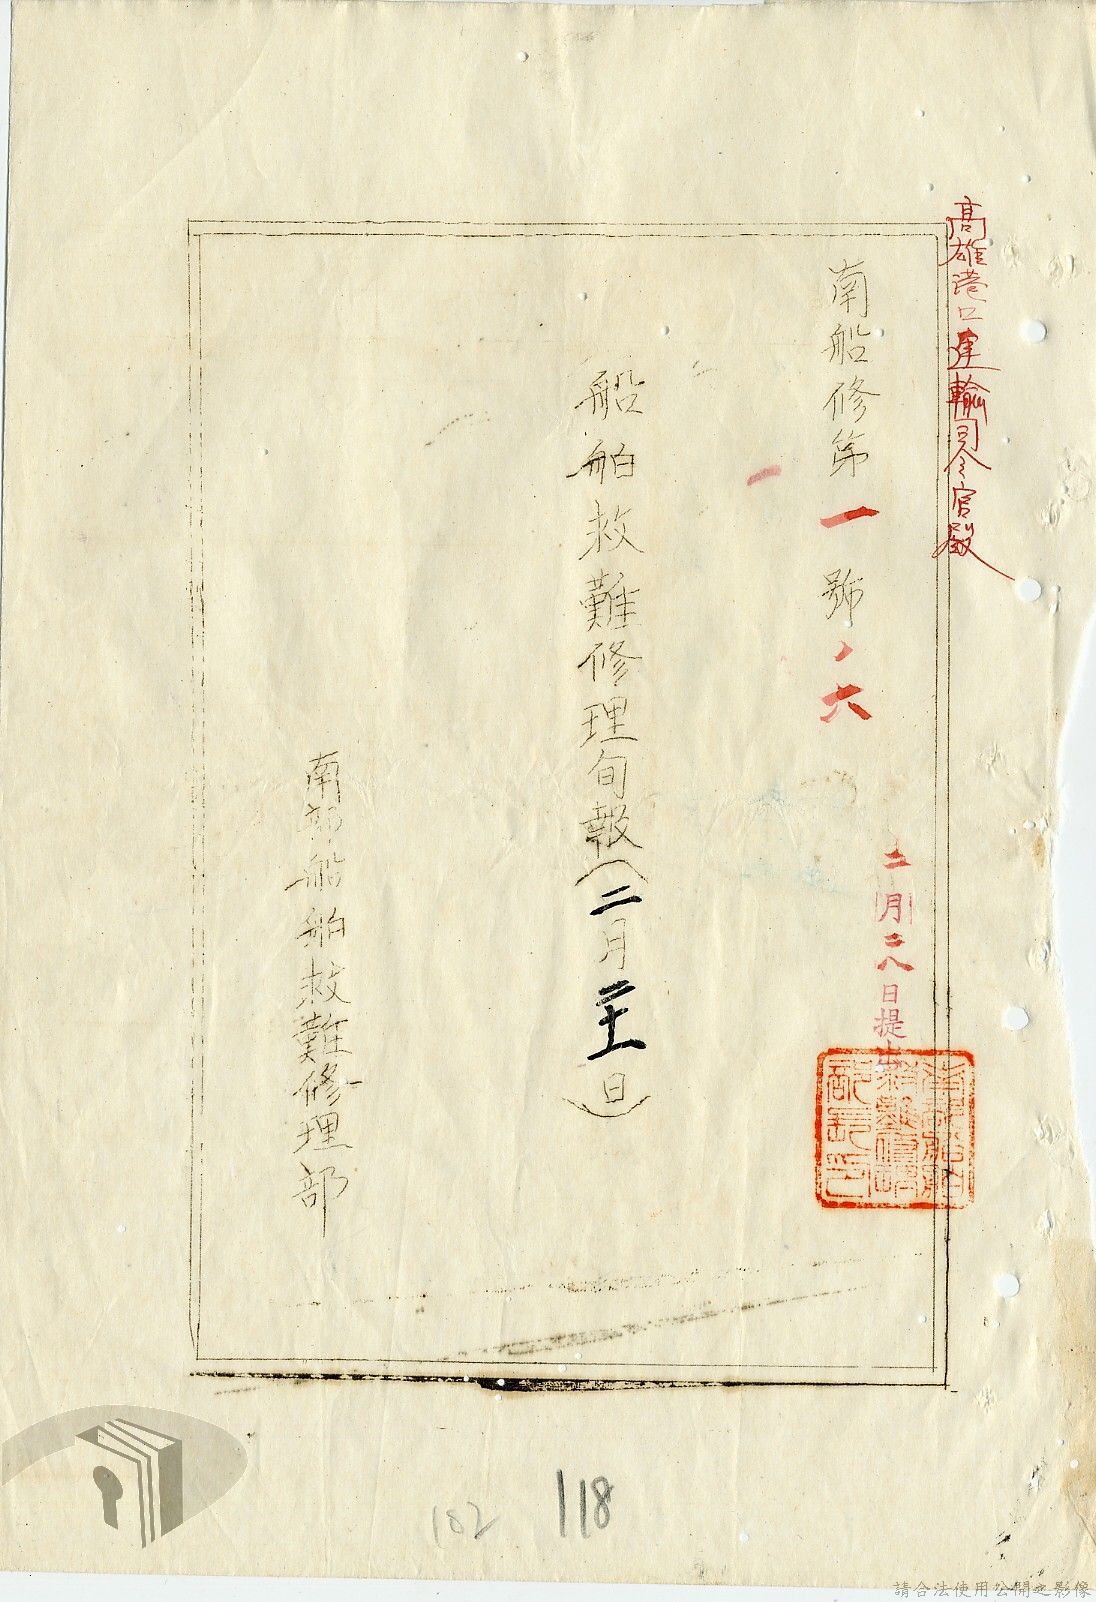 高雄港口運輸司令官殿
南船修第一號ノ六
二月二八日提出
船舶救難修理旬報(二月二十日)
南部船舶救難修理部
南部船舶
救難修理
部長印
182
118
請合法使用公開之影像